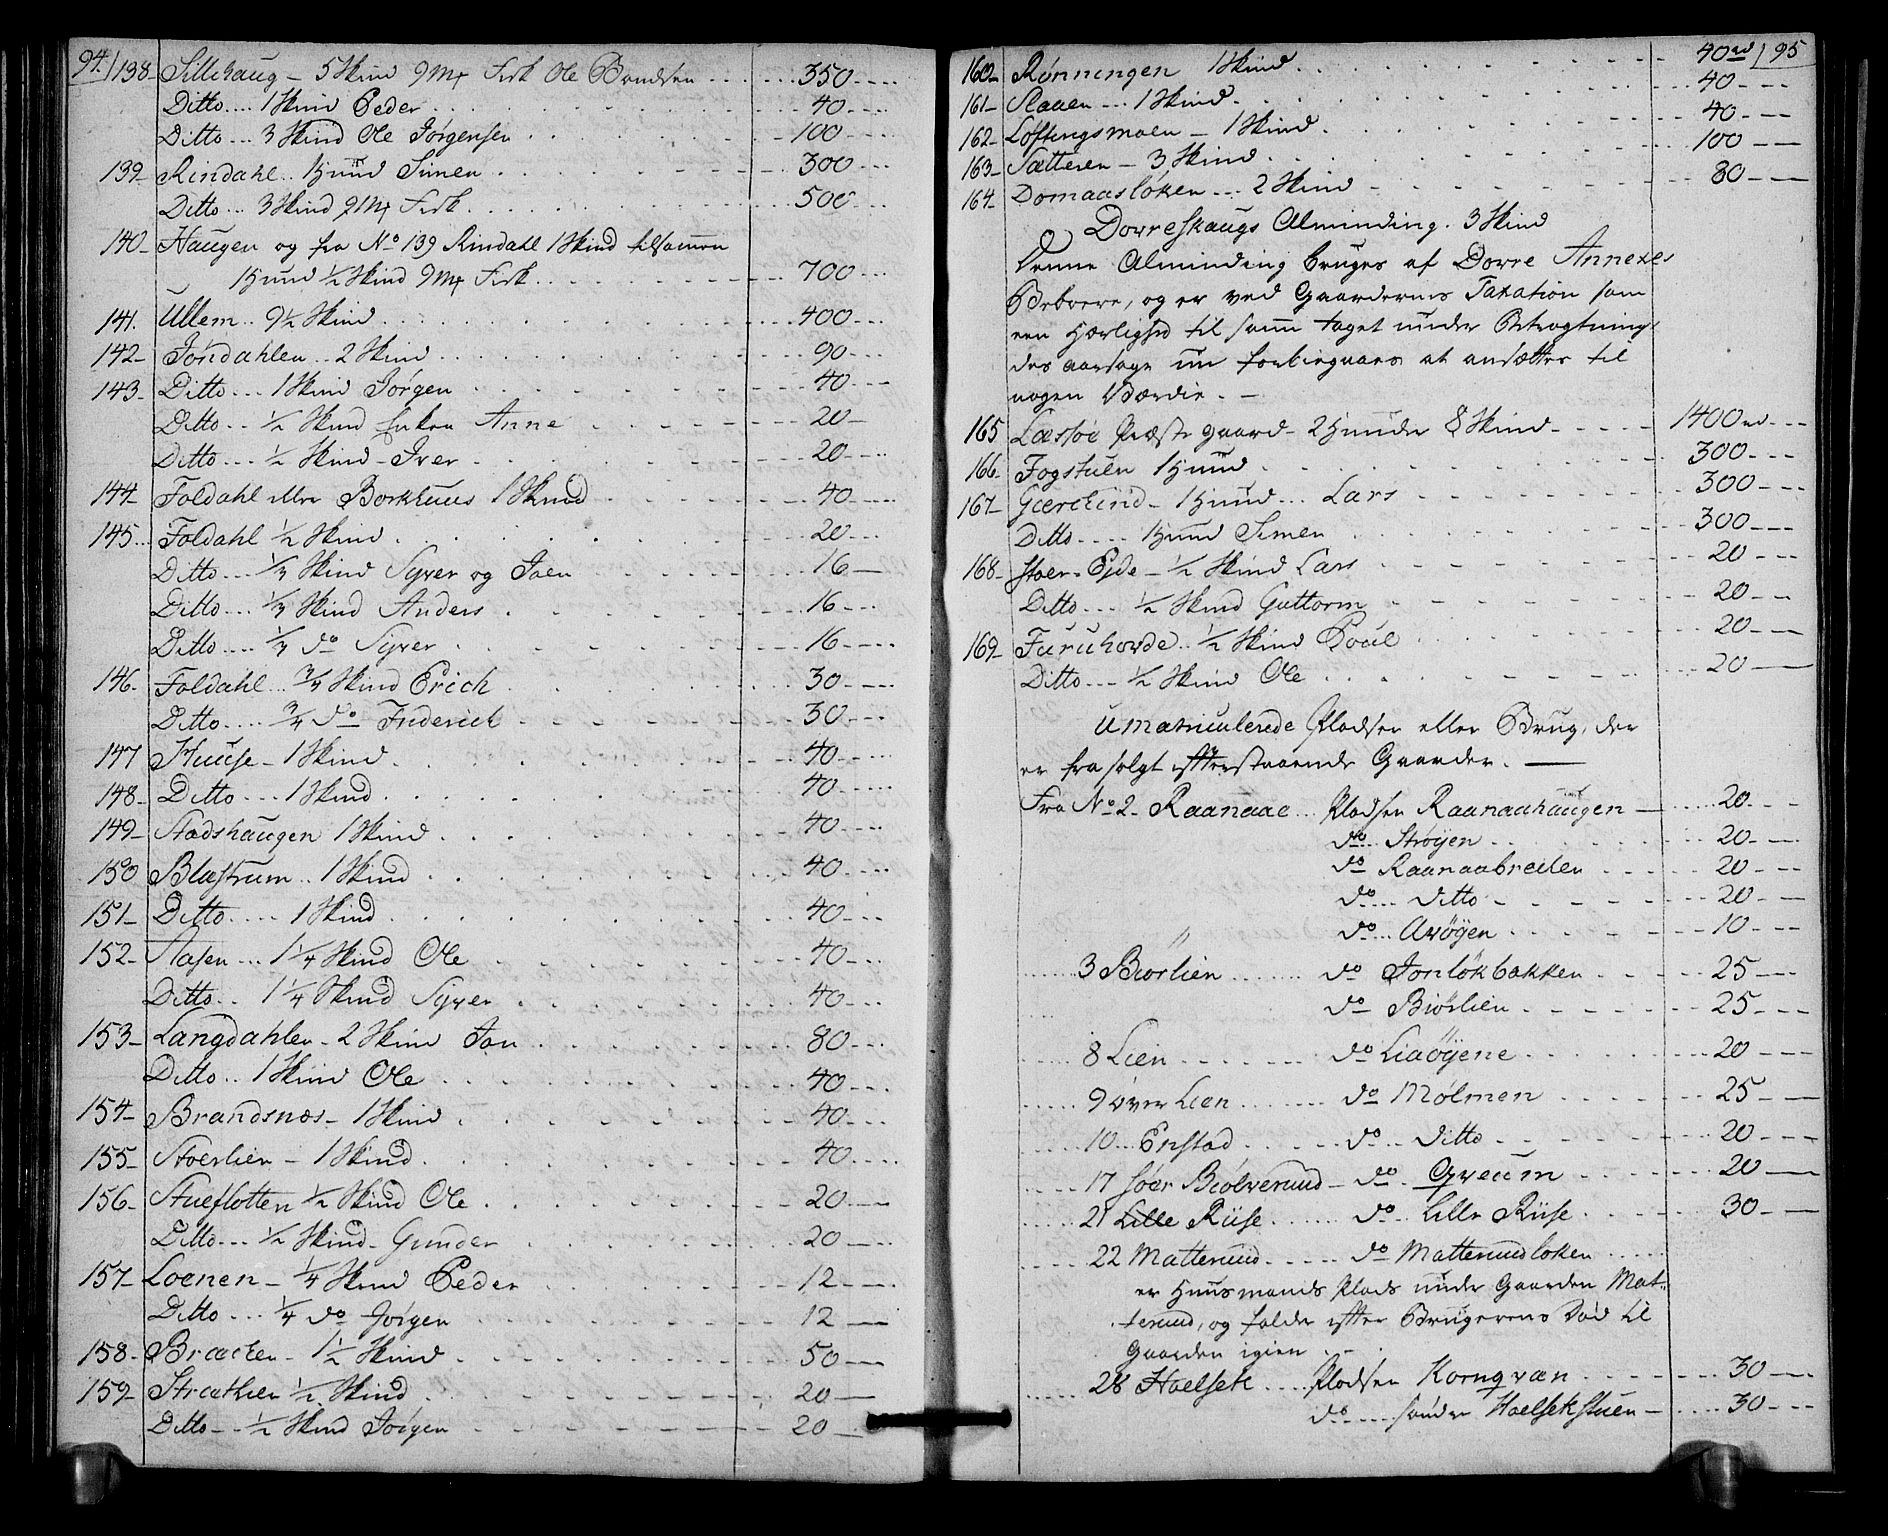 94.
138- Sillehaug - 5 Skind 9 Mk Fisk Ole Bondsen 350
Ditto 1 Skind Peder 40
Ditto 3 Skind Ole Jörgensen 100
139- Rindahl 1 Huud Simen 300
Ditto 3 Skind 9 Mk Fisk 500
140- Haugen og fra No 139 Rindahl 1 Skind tilsammen
1 Huud ½ Skind 9 Mk Fisk 700
141. Ullem 9½ Skind 400
142- Jöndahlen 2 Skind 90
143- Ditto 1 Skind Jörgen 40
Ditto ½ Skind Enken Anne 20
Ditto ½ Skind - Iver 20
144- Foldahl eller Borkhuus 1 Skind 40
145 Foldahl ½ Skind 20
Ditto ⅓ Skind Syver og Joen 16
Ditto ⅓ Skind Anders 16
Ditto ⅓ do Syver 16
146- Foldahl ¾ Skind Erich 30
Ditto ¾ do Friderich 30
147 Huuse - 1 Skind 40
148- Ditto 1 Skind 40
149- Stadshaugen 1 Skind 40
150 Blæstrum 1 Skind 40
151- Ditto 1 Skind 40
152- Aasen 1¼ Skind Ole 40
Ditto 1¼ Skind Syver 40
153- Langdahlen - 2 Skind Jon 80
Ditto 1 Skind Ole 40
154- Brandsnæs - 1 Skind 40
155- Stoerlien - 1 Skind 40
156- Stueflotten ½ Skind Ole 20
Ditto ½ Skind - Gunder 20
157- Loenen - ¼ Skind Peder 12
Ditto ¼ do Jörgen 12
158- Bræcken - 1½ Skind 50
159- Stræthien ½ Skind 20
Ditto ½ Skind Jörgen 20
95
160- Rønningen 1 Skind 40 rd
161- Slaaen 1 Skind 40
162- Løftingsmoen - 1 Skind 40
163- Sætteren - 3 Skind 100
164- Domaasløken 2 Skind 80
Dovreskaugs Alminding. 3 Skind
Denne Alminding bruges af Dovre Annexes
Beboere, og er ved Gaardernes Taxation som
een Herlighed til samme taget under Betragtning,
des aarsage den forbiegaaes at ansættes til
nogen Værdie. -
165 Læssöe Præste gaard - 2 Huuder 8 Skind 1400 rd
166- Fogstuen 1 Huud 300
167- Giertlind - 1 Huud Lars 300
Ditto 1 Huud Simen 300
168- Stoer-Ejde - ½ Skind Lars 20
Ditto ½ Skind Guttorm 20
169- Furuhovde ½ Skind Poul 20
Ditto ½ Skind Ole 20
Umatriculerede Pladser eller Brug, der
er fra solgt efterstaaende Gaarder. -
Fra No 2- Raanaae Pladsen Raanaahaugen 20
do Strøyen 20
do Raanaabreden 20
do ditto 20
do Avøyen 10
3 Biorlien do Jonløkbakken 25
do Biörlien 25
8 Lien do Liaöyene 20
9 Over Lien do Mølmen 25
10 Enstad do ditto 20
17 Söer Biölverud - do Qveum 20
21 Lille Riise do Lille Riise 30
22 Matterud do Matterudloken
er Huusmands Plads under Gaarden Mat-
terud, og falder efter Brugerens Død til
Gaarden igien
28 Hoelsek Pladsen Kornqvæn 30
do söndre Hoelsekstuen 30